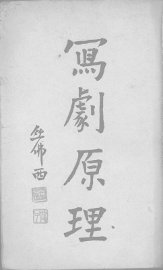 寫劇原理
熊佛西